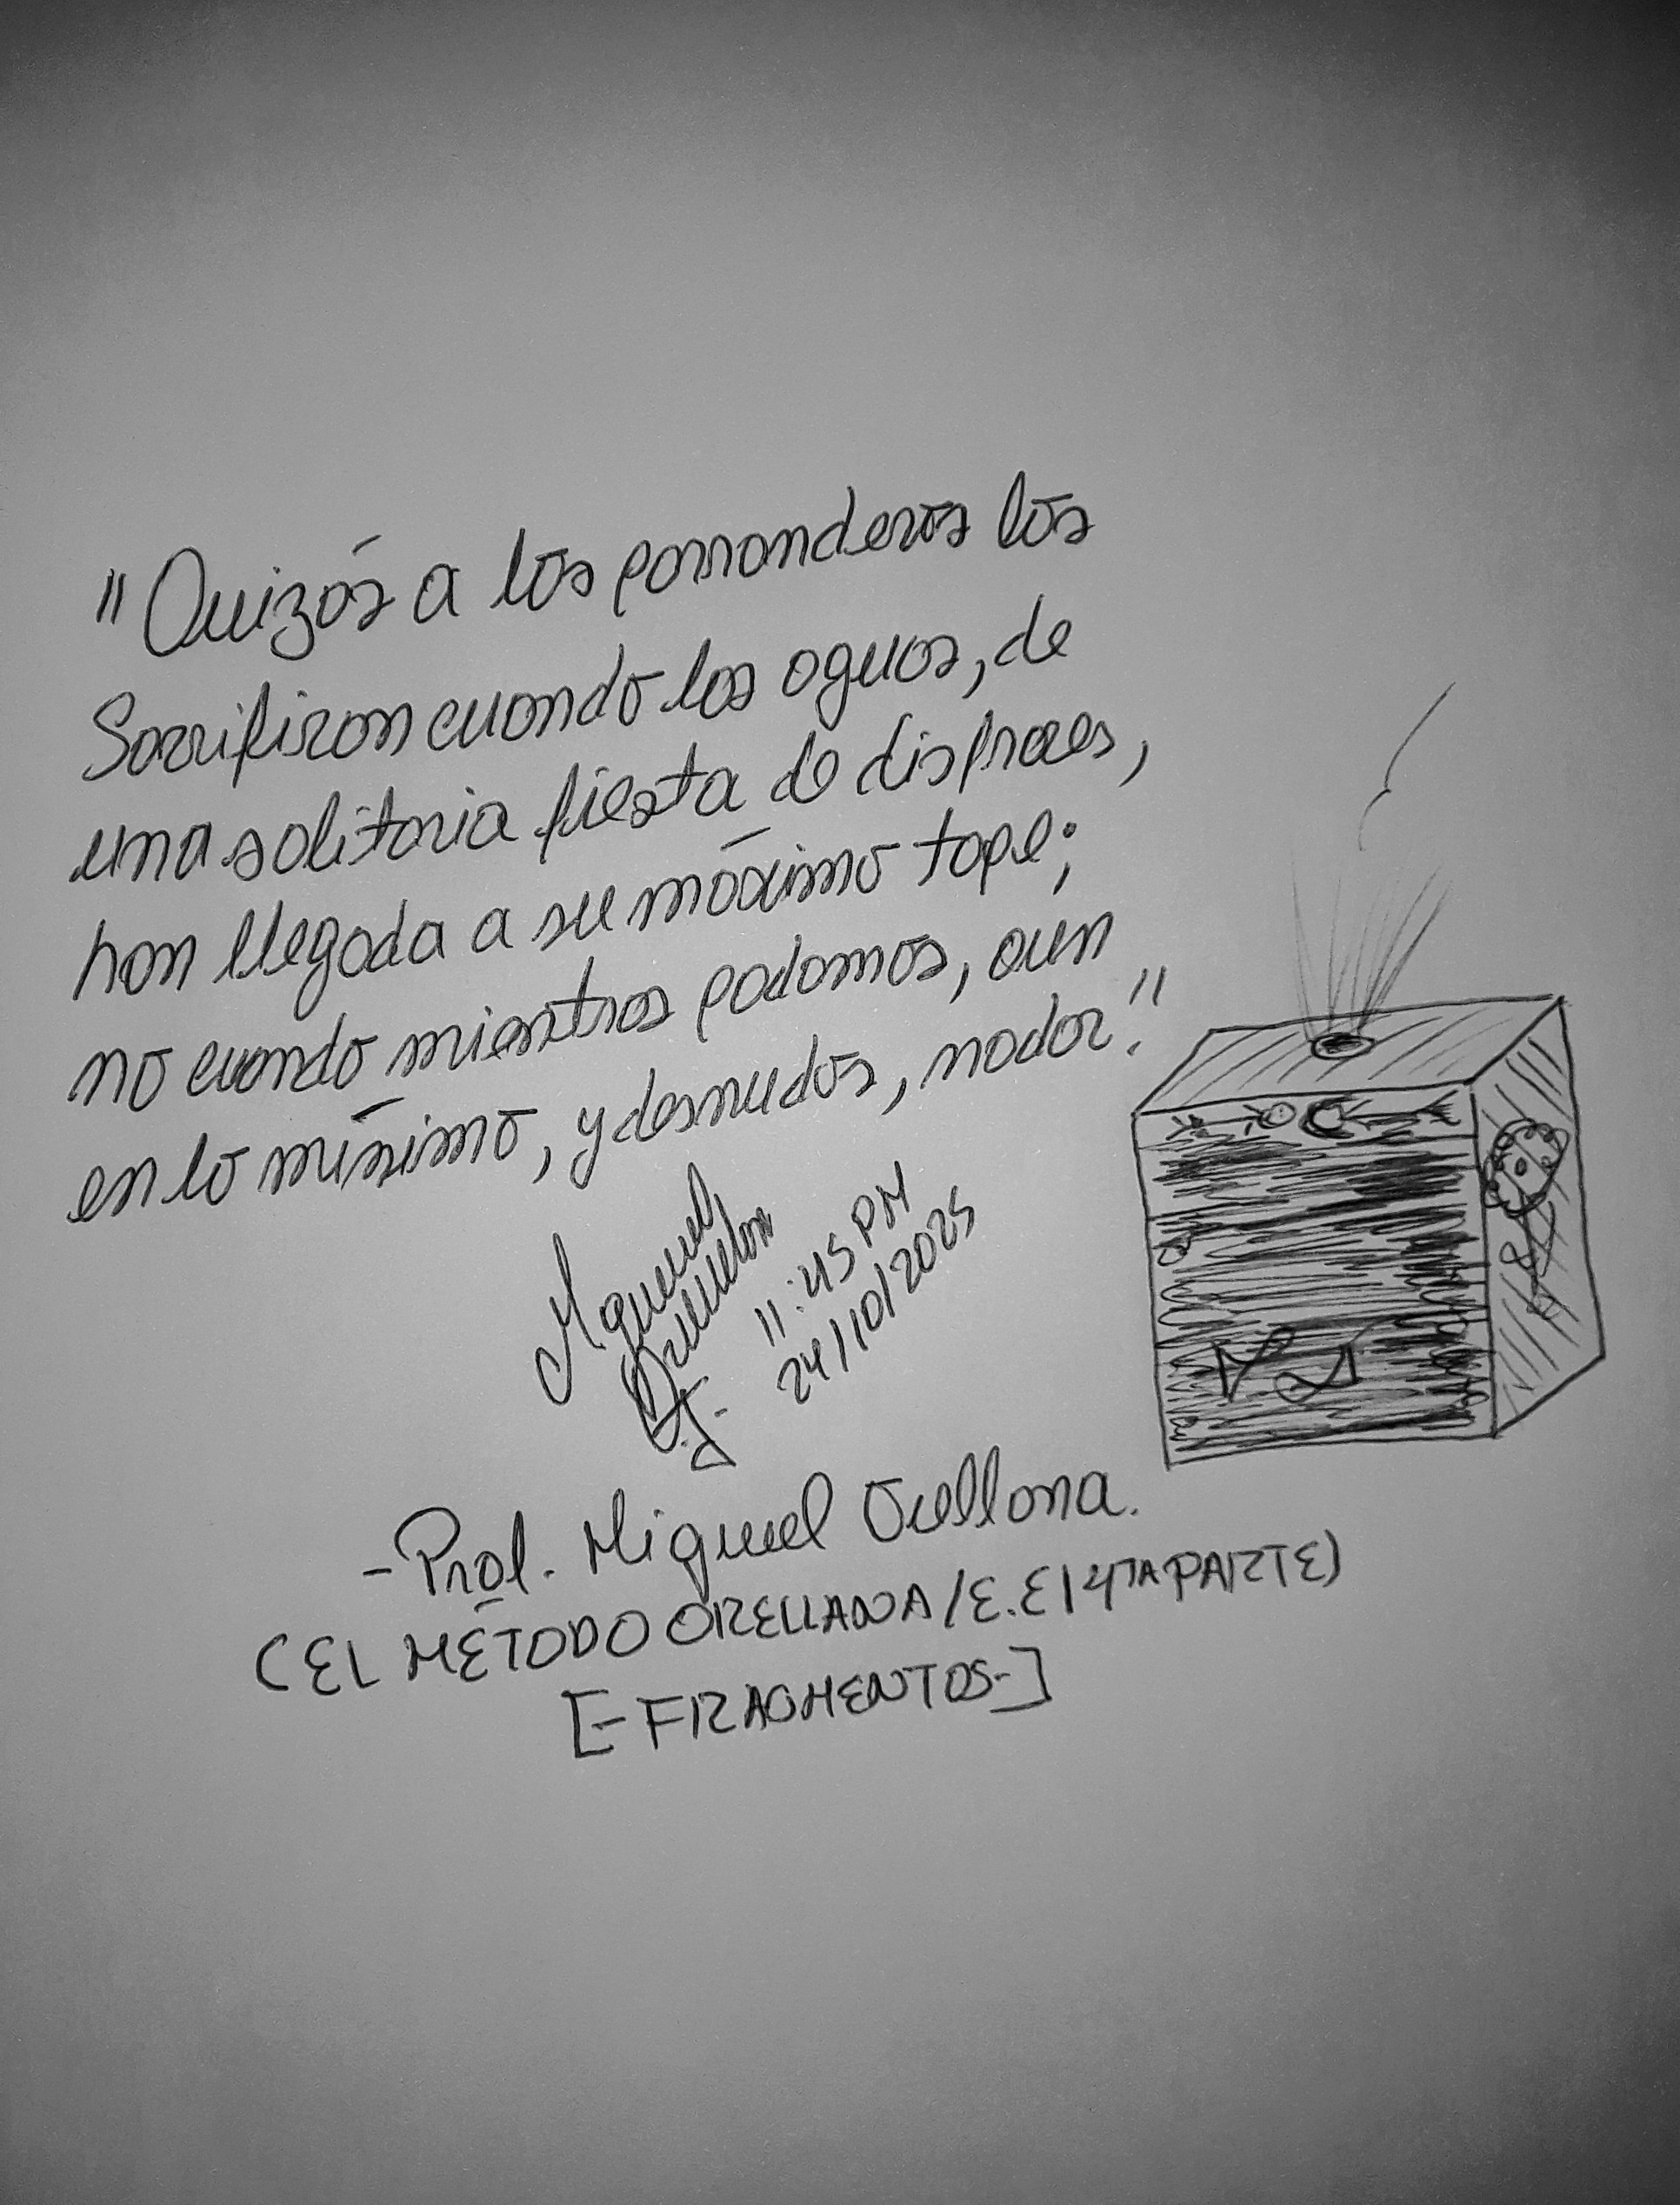 "Quizás a los parranderos los
Sacrifican cuando las aguas, de
una solitaria fiesta de disfraces,
han llegada a su máximo tope;
no cuando mientras podamos, aun
en lo mínimo, y desnudos, nadar."
Miguel
Orellana
11:45 PM
24/10/2025
-Prof. Miguel Orellana.
(EL MÉTODO ORELLANA/E.E/4TA PARTE)
[-FRAGMENTOS-]